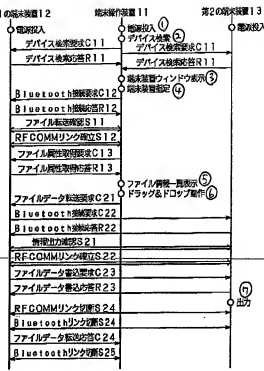 1の端末装置12 端末操作装置11 第2の端末装置13
電源投入 電源投入① 電源投入
デバイス検索②
デバイス検索要求C11 デバイス検索要求C11
デバイス検索応答R11 デバイス検索応答R11
端末装置ウィンドウ表示③
端末装置指定④
Bluetooth接続要求C12
Bluetooth接続応答R12
ファイル転送確認S11
RFCOMMリンク確立S12
ファイル属性取得要求C13
ファイル属性取得応答R13
ファイル情報一覧表示⑤
ドラッグ&ドロップ動作⑥
ファイルデータ転送要求C21
Bluetooth接続要求C22
Bluetooth接続応答R22
情報出力確認S21
RFCOMMリンク確立S22
ファイルデータ書込要求C23
ファイルデータ書込応答R23
⑦
出力
RFCOMMリンク切断S24
Bluetoothリンク切断S24
ファイルデータ転送応答C24
Bluetoothリンク切断S25